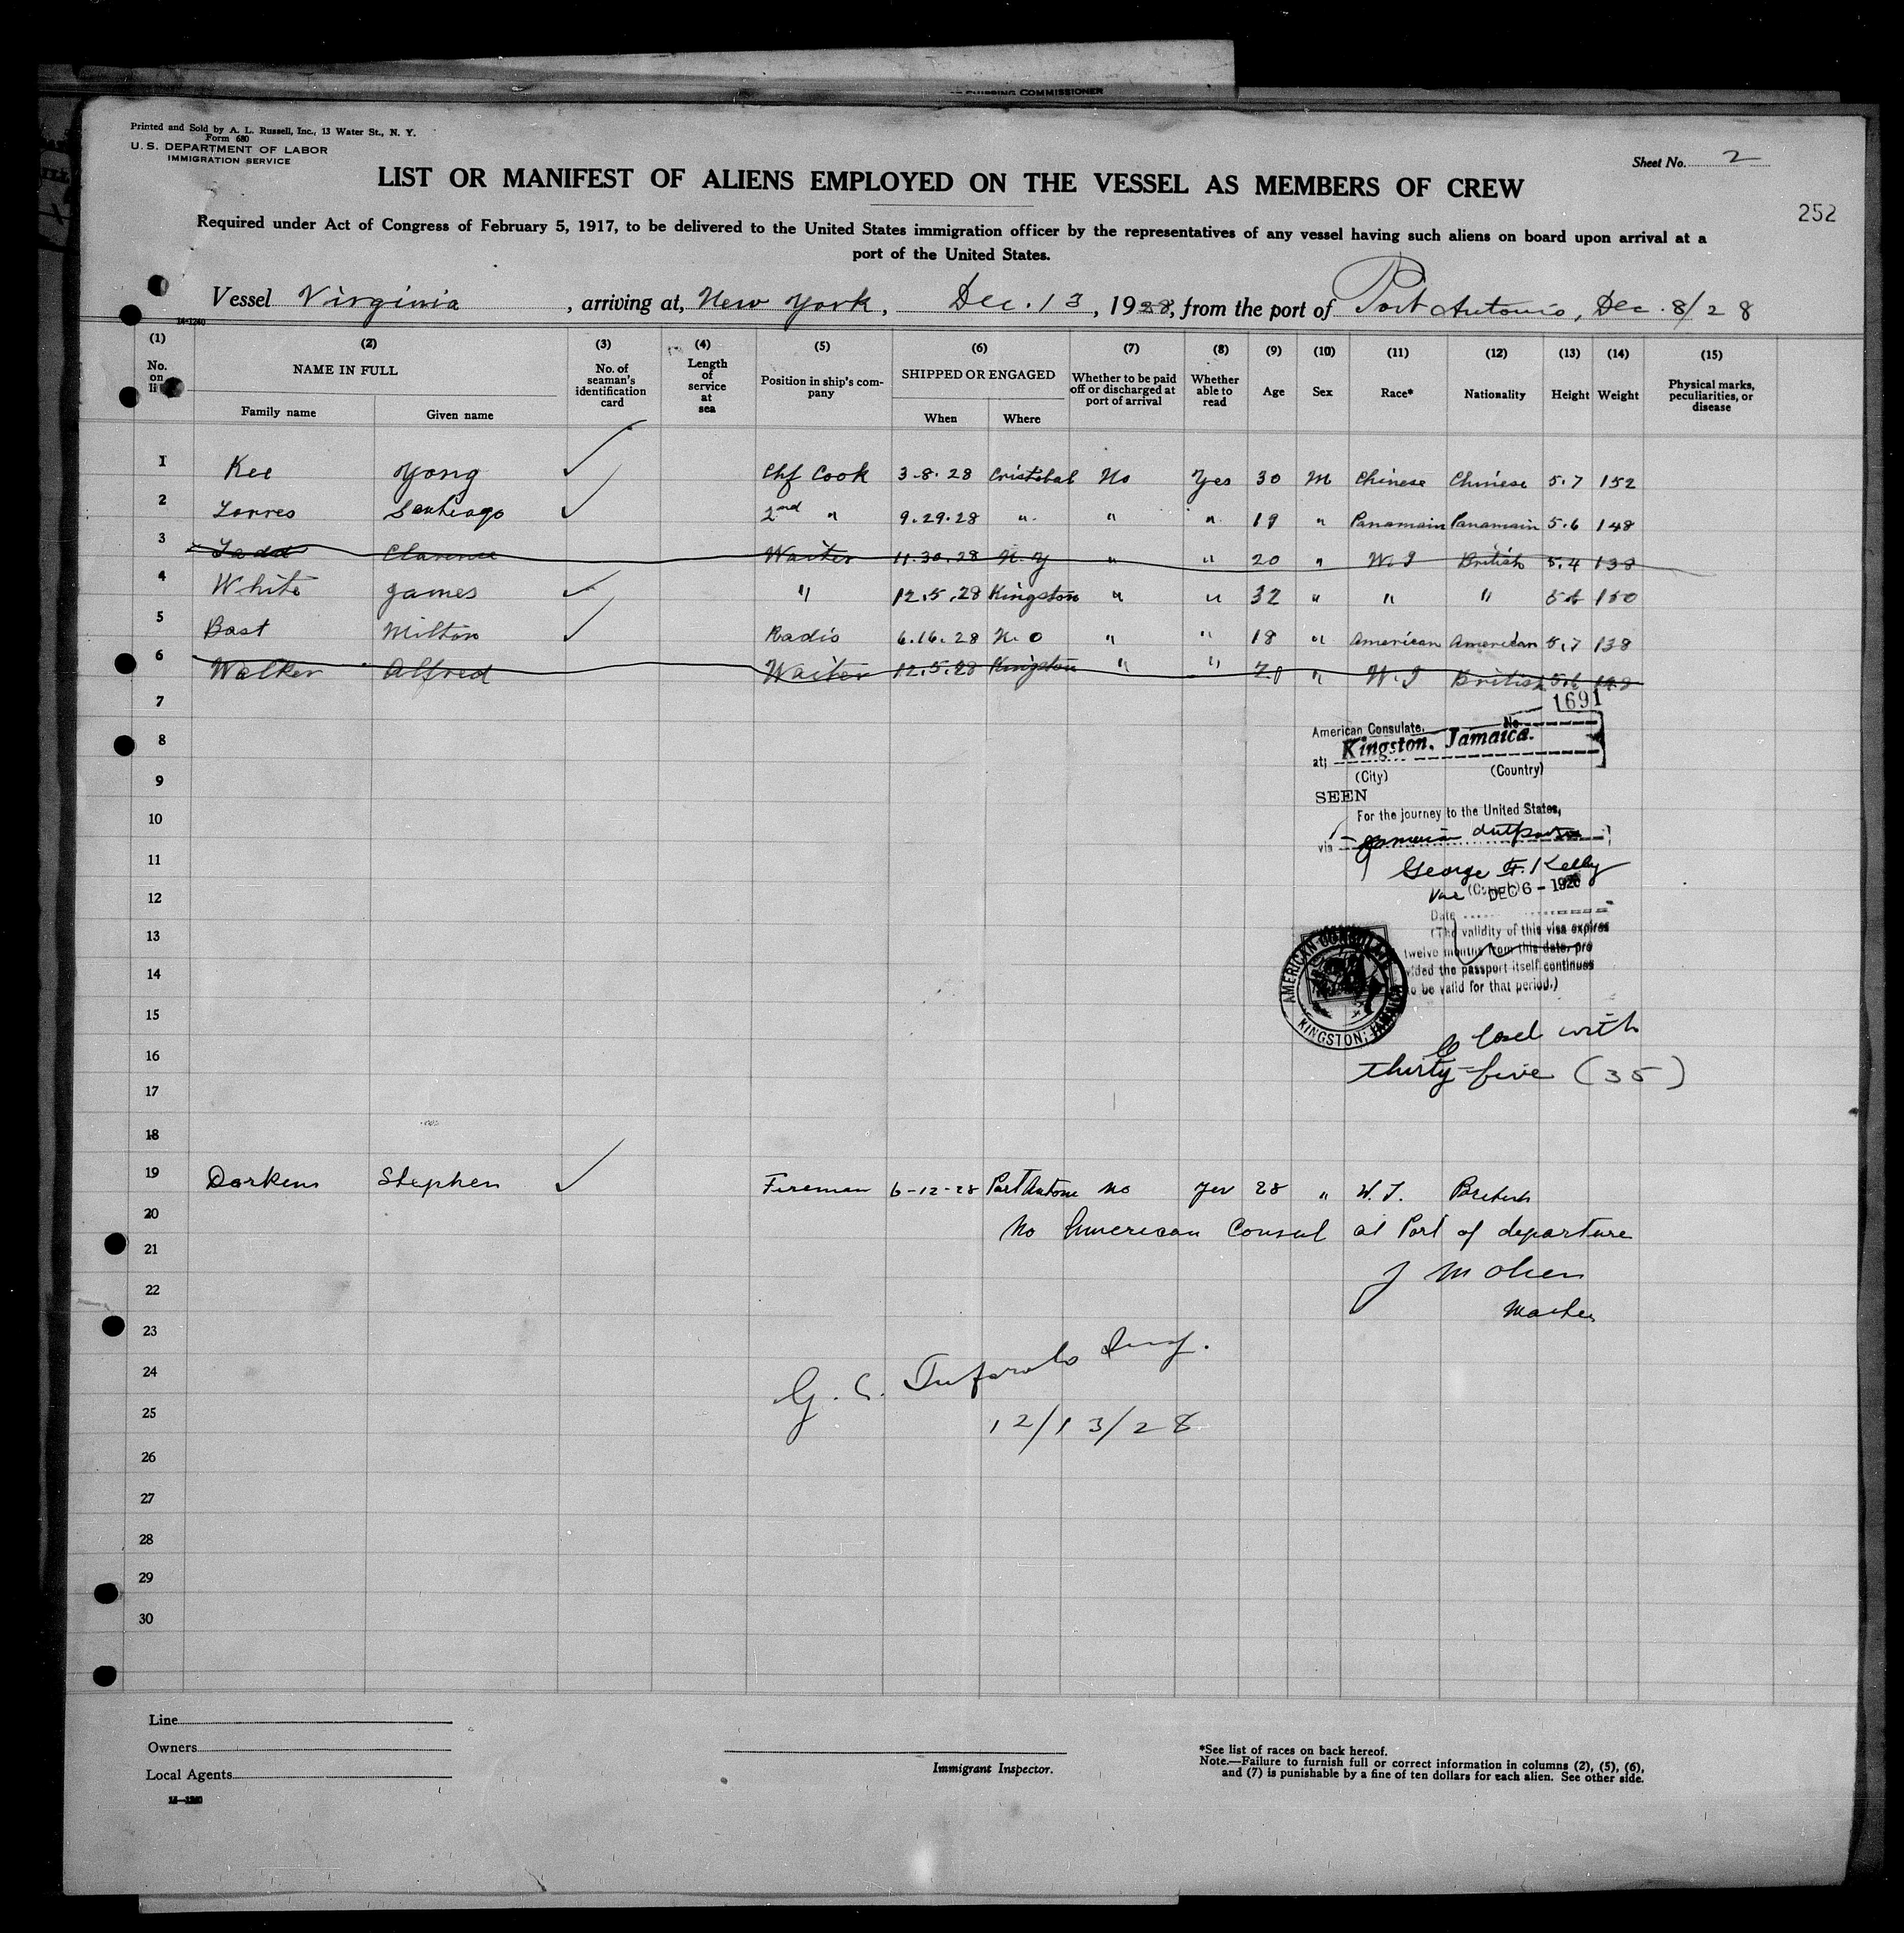 SHIPPING COMMISSIONER
Printed and Sold by A. L. Russell, Inc., 13 Water St., N. Y.
Form 680
U. S. DEPARTMENT OF LABOR
IMMIGRATION SERVICE
Sheet No. 2
LIST OR MANIFEST OF ALIENS EMPLOYED ON THE VESSEL AS MEMBERS OF CREW
252
Required under Act of Congress of February 5, 1917, to be delivered to the United States immigration officer by the representatives of any vessel having such aliens on board upon arrival at a
port of the United States.
Vessel Virginia, arriving at, New York, Dec. 13, 1928, from the port of Port Antonio, Dec. 8/28
14-1240
(1) (2) (3) (4) (5) (6) (7) (8) (9) (10) (11) (12) (13) (14) (15)
No. on list
NAME IN FULL
Family name
Given name
No. of seaman's identification card
Length of service at sea
Position in ship's company
SHIPPED OR ENGAGED
When
Where
Whether to be paid off or discharged at port of arrival
Whether able to read
Age
Sex
Race*
Nationality
Height
Weight
Physical marks, peculiarities, or disease
1 Kee Yong Chf Cook 3-8-28 Cristobal No Yes 30 M Chinese Chinese 5.7 152
2 Torres Santiago 2nd " 9.29.28 " " " 19 " Panamain Panamain 5.6 148
3 Todd Clarence Waiter 11.30.28 N.Y " " 20 " W.I British 5.4 138
4 White James " 12.5.28 Kingston " " 32 " " " 5.6 150
5 Bast Milton Radio 6.16.28 N.O " " 18 " American American 5.7 138
6 Walker Alfred Waiter 12.5.28 Kingston " " " W.I British 5.6
7
8
9
10
11
12
13
14
15
16
17
18
1691
American Consulate, No.
at; Kingston, Jamaica.
(City) (Country)
SEEN
For the journey to the United States,
via Jamaica outports
George F. Kelly
Vice (Consul) DEC 6 - 1928
Date
(The validity of this visa expires
twelve months from this date, pro
vided the passport itself continues
to be valid for that period.)
AMERICAN CONSULATE
KINGSTON, JAMAICA
Closed with
thirty-five (35)
19 Darkens Stephen Fireman 6-12-28 Port Antonio No Yes 28 " W.I. British
20 No American Consul at Port of departure
21 J M Olsen
22 Master
23
24 G. C. Insp.
25 12/13/28
26
27
28
29
30
Line
Owners
Local Agents
14-1240
Immigrant Inspector.
*See list of races on back hereof.
Note.—Failure to furnish full or correct information in columns (2), (5), (6),
and (7) is punishable by a fine of ten dollars for each alien. See other side.